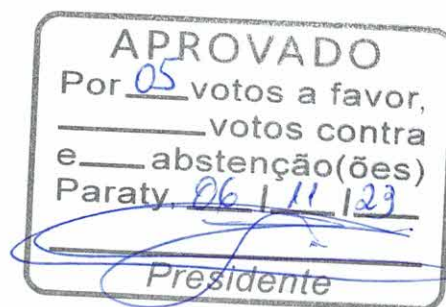 APROVADO
Por 05 votos a favor,
votos contra
e abstenção(ões)
Paraty, 06 / 11 / 23
Presidente